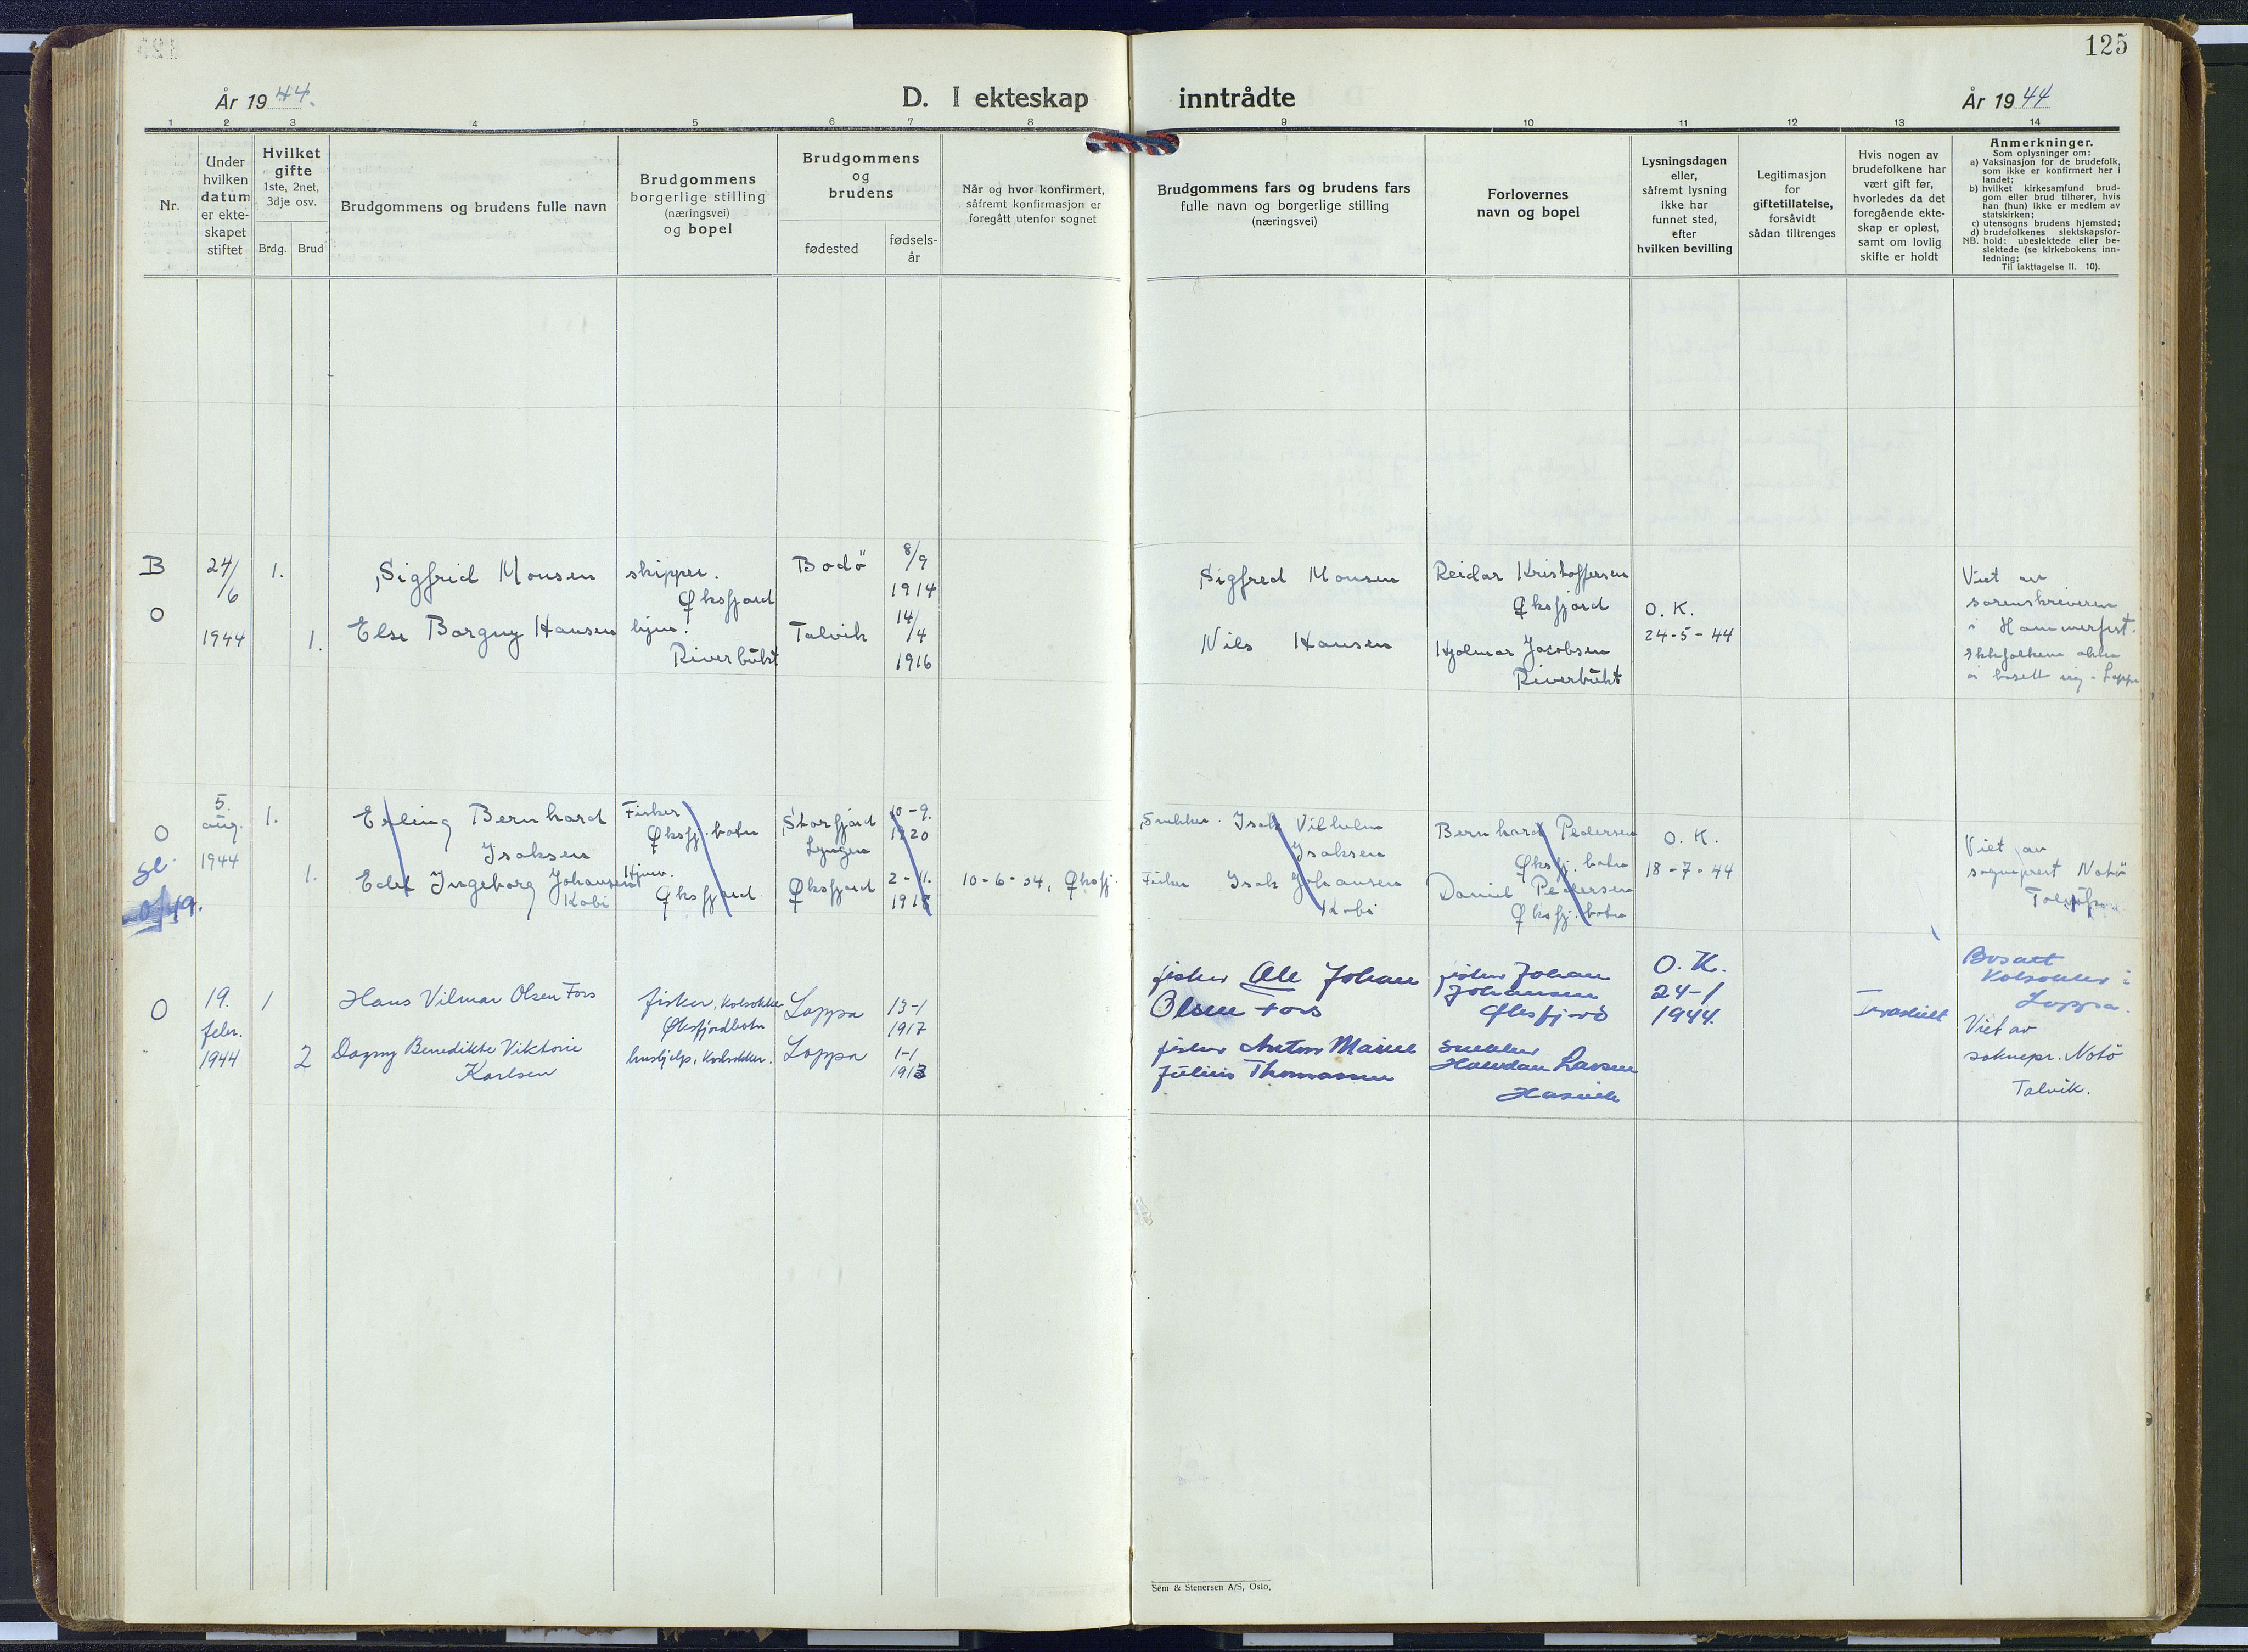 125
År 1944.
D. I ekteskap inntrådte
År 1944
1 2 3 4 5 6 7 8 9 10 11 12 13 14
Nr.
Under
hvilken
datum
er ekte-
skapet
stiftet
Hvilket
gifte
1ste, 2net,
3dje osv.
Brdg. Brud
Brudgommens og brudens fulle navn
Brudgommens
borgerlige stilling
(næringsvei)
og bopel
Brudgommens
og
brudens
fødested
fødsels-
år
Når og hvor konfirmert,
såfremt konfirmasjon er
foregått utenfor sognet
Brudgommens fars og brudens fars
fulle navn og borgerlige stilling
(næringsvei)
Forlovernes
navn og bopel
Lysningsdagen
eller,
såfremt lysning
ikke har
funnet sted,
efter
hvilken bevilling
Legitimasjon
for
giftetillatelse,
forsåvidt
sådan tiltrenges
Hvis nogen av
brudefolkene har
vært gift før,
hvorledes da det
foregående ekte-
skap er opløst,
samt om lovlig
skifte er holdt
Anmerkninger.
Som oplysninger om:
a) Vaksinasjon for de brudefolk,
som ikke er konfirmert her i
landet;
b) hvilket kirkesamfund brud-
gom eller brud tilhører, hvis
han (hun) ikke er medlem av
statskirken;
c) utensogns brudens hjemsted;
d) brudefolkenes slektskapsfor-
NB. hold: ubeslektede eller be-
slektede (se kirkebokens inn-
ledning;
Til iakttagelse II. 10).
B
O
24/6
1944
1.
1.
Sigfrid Monsen
Else Borgny Hansen
skipper.
Øksfjord
hjem.
Riverbukt
Bodö
Talvik
8/9
1914
14/4
1916
Sigfred Monsen
Nils Hansen
Reidar Kristoffersen
Øksfjord
Hjalmar Jacobsen
Riverbukt
O.K.
24-5-44
Viet av
sorenskriveren
i Hammerfest.
O
5.
aug.
1944
1.
1.
Erling Bernhard
Isaksen
Edel Ingeborg Johansen
Kobi
Fisker
Øksfj.botn
Hjem.
Øksfjord
Storfjord
Lyngen
Øksfjord
10-9.
1920
2-11.
10-6-34, Øksfj.
Snekker. Isak Vilhelm
Isaksen
Fisker Isak Johansen
Kobi
Bernhard Pedersen
Øksfj.botn
Daniel Pedersen
Øksfj.botn
O.K.
18-7-44
Viet av
sogneprest Notö
O
19.
febr.
1944
1
2
Hans Vilmar Olsen Fors
Dagny Benedikte Viktorie
Karlsen
fisker,
Øksfjordbotn
hushjelp,
Loppa
Loppa
13-1
1917
1-1
1913
fisker Ole Johan
Olsen Fors
fisker Anton Marius
Julius Thomassen
fisker Johan
Johansen
Øksfjord
snekker
Haldan Larsen
Hasvik
O.K.
24-1
1944.
Bosatt
i
Loppa.
Viet av
soknepr. Notö
Talvik.
Sem & Stenersen A/S, Oslo.